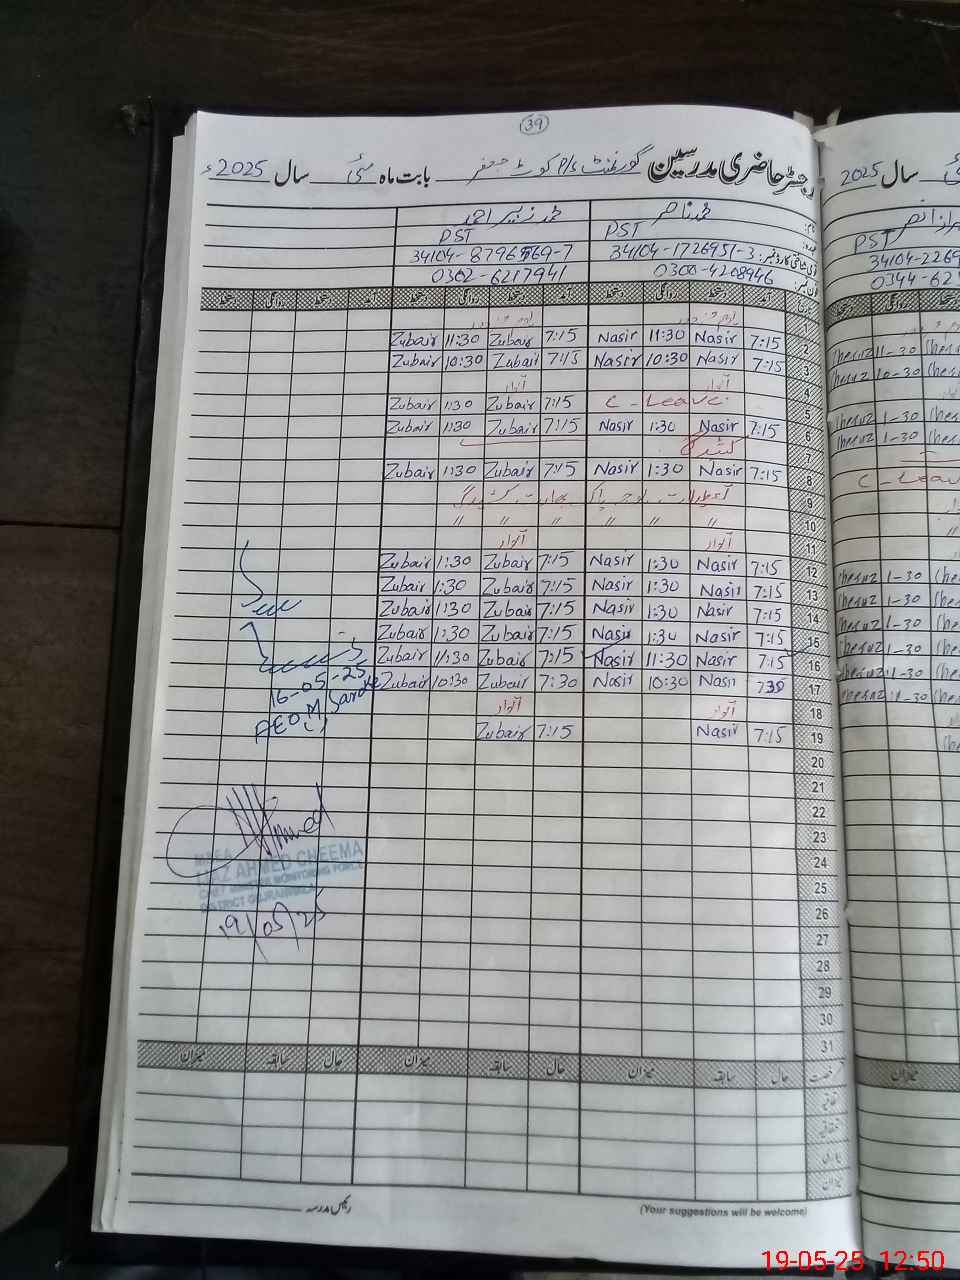 39
رجسٹر حاضری مدرسین گورنمنٹ P/s کوٹ جعفر بابت ماہ مئی سال 2025ء
محمد ناصر محمد زبیر احمد
PST PST
34104-1726951-3 34104-8796569-7
0300-4208946 0302-6217941
آمد دستخط روانگی دستخط آمد دستخط روانگی دستخط آمد دستخط روانگی دستخط
1
2 7:15 Nasir 11:30 Nasir 7:15 Zubair 11:30 Zubair
3 7:15 Nasir 10:30 Nasir 7:15 Zubair 10:30 Zubair
4 اتوار اتوار
5 C-Leave 7:15 Zubair 1:30 Zubair
6 7:15 Nasir 1:30 Nasir 7:15 Zubair 1:30 Zubair
7
8 7:15 Nasir 1:30 Nasir 7:15 Zubair 1:30 Zubair
9
10 " " " " "
11 اتوار اتوار
12 7:15 Nasir 1:30 Nasir 7:15 Zubair 1:30 Zubair
13 7:15 Nasir 1:30 Nasir 7:15 Zubair 1:30 Zubair
14 7:15 Nasir 1:30 Nasir 7:15 Zubair 1:30 Zubair
15 7:15 Nasir 1:30 Nasir 7:15 Zubair 1:30 Zubair
16 7:15 Nasir 11:30 Nasir 7:15 Zubair 11:30 Zubair
17 7:30 Nasir 10:30 Nasir 7:30 Zubair 10:30 Zubair
18 اتوار اتوار
19 7:15 Nasir 7:15 Zubair
20
21
22
23
24
25
26
27
28
29
30
31
16-05-25
AEO, M,
Ahmed
AHMED CHEEMA
CHIEF MINISTER MONITORING FORCE
DISTRICT GUJRANWALA
19/05/25
رخصت حال سابقہ میزان حال سابقہ میزان حال سابقہ میزان
اتفاقیہ
استحقاقیہ
بیماری
میزان
رئیس مدرسہ
(Your suggestions will be welcome)
سال 2025
PST
34104-2269
0344-62
11-30
10-30
1-30
1-30
C-Leav
1-30
1-30
1-30
1-30
11-30
میزان
19-05-25 12:50